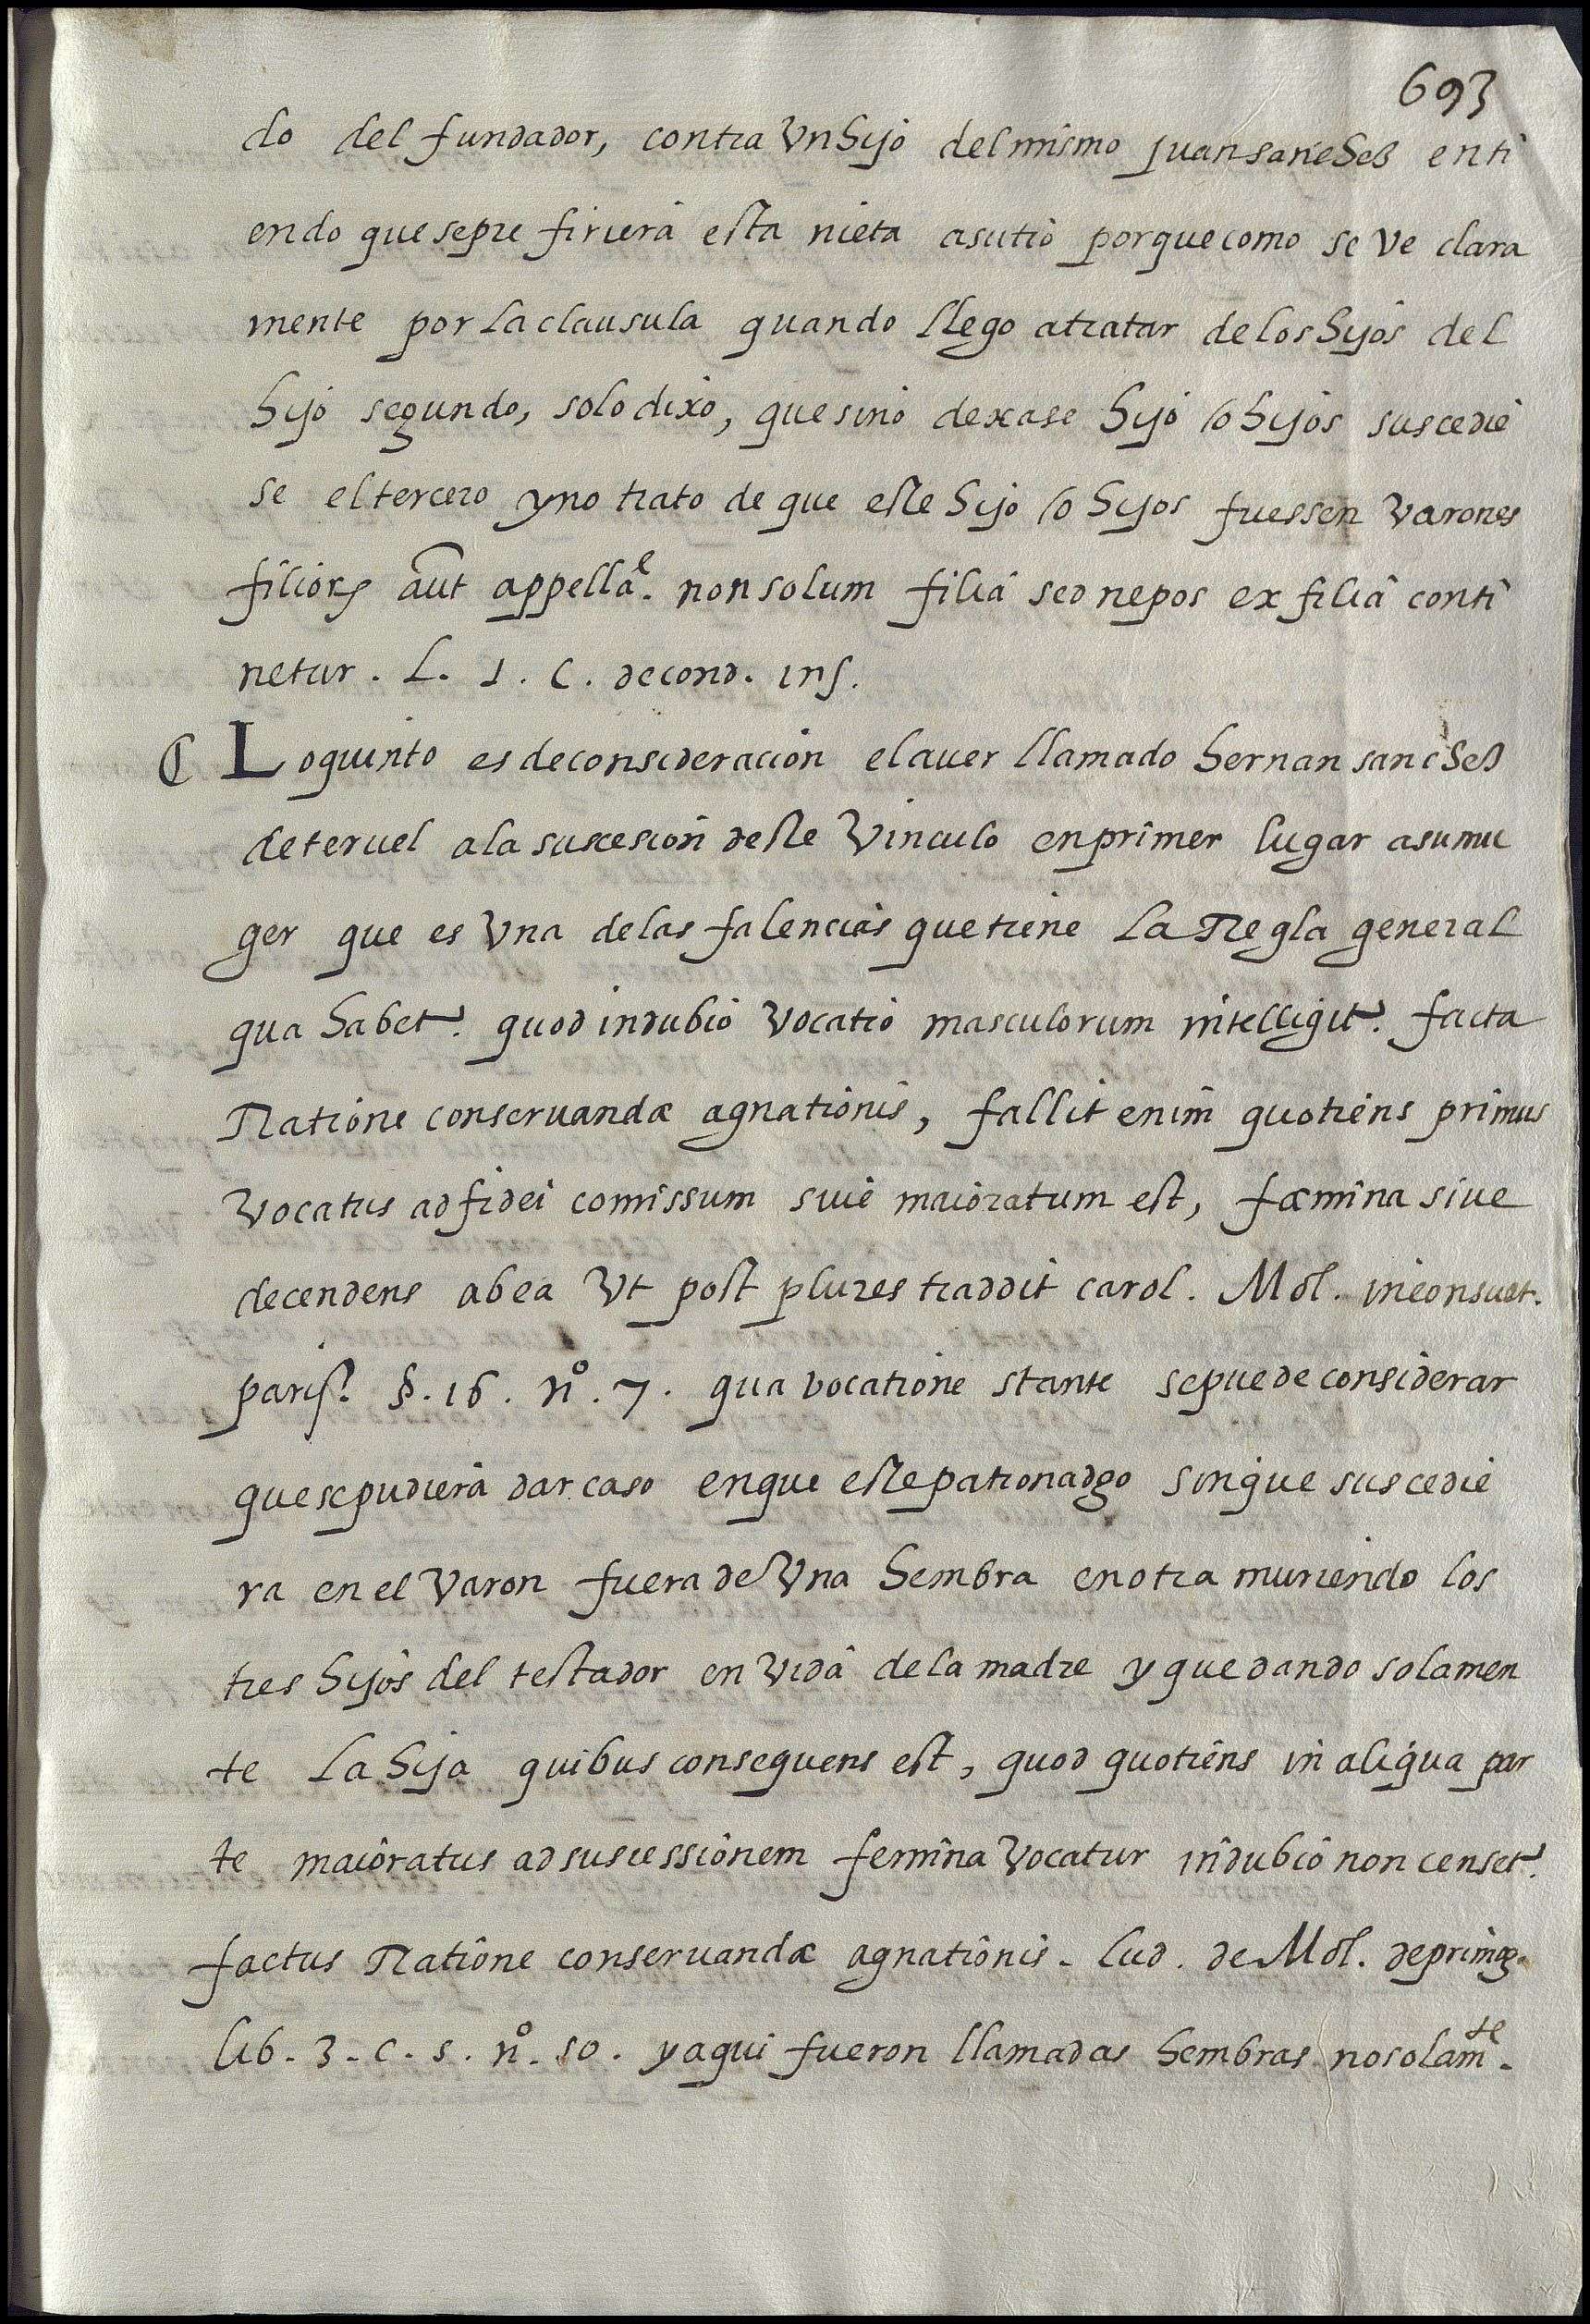 693
do del fundador, contra vn hijo del mismo Juan sanches enti
endo que se pre firiera esta nieta a su tio porque como se ve clara
mente por la clausula quando llego a tratar de los hijos del
hijo segundo, solo dixo, que si no dexase hijo o hijos suscedie
se el tercero y no trato de que este hijo o hijos fuessen varones
filiorȝ aut̃ appellaᵉ. non solum filia sed nepos ex filia conti
netur. L. 1. C. de cond. ins.
₵ Lo quinto es de consideracion el auer llamado hernan sanches
de teruel a la suscesion deste vinculo en primer lugar a su mu
ger que es vna de las falencias que tiene la Regla general
qua habet^r. quod in dubio vocatio masculorum intelligit^r. facta
Ratione conseruandæ agnationis, fallit enim quotiens primus
vocatus ad fidei comissum siue maioratum est, fæmina siue
decendens ab ea vt post plures traddit carol. Mol. in consuet.
paris. §. 16. nº. 7. qua vocatione stante se puede considerar
que se pudiera dar caso en que este patronadgo sin que suscedie
ra en el varon fuera de vna hembra en otra muriendo los
tres hijos del testador en vida de la madre y quedando solamen
te la hija quibus consequens est, quod quotiens in aliqua par
te maioratus ad suscessionem femina vocatur in dubio non censet^r.
factus Ratione conseruandæ agnationis. Lud. de Mol. de primog.
lib. 3. c. 5. nº. 50. y aqui fueron llamadas hembras no solam^te.